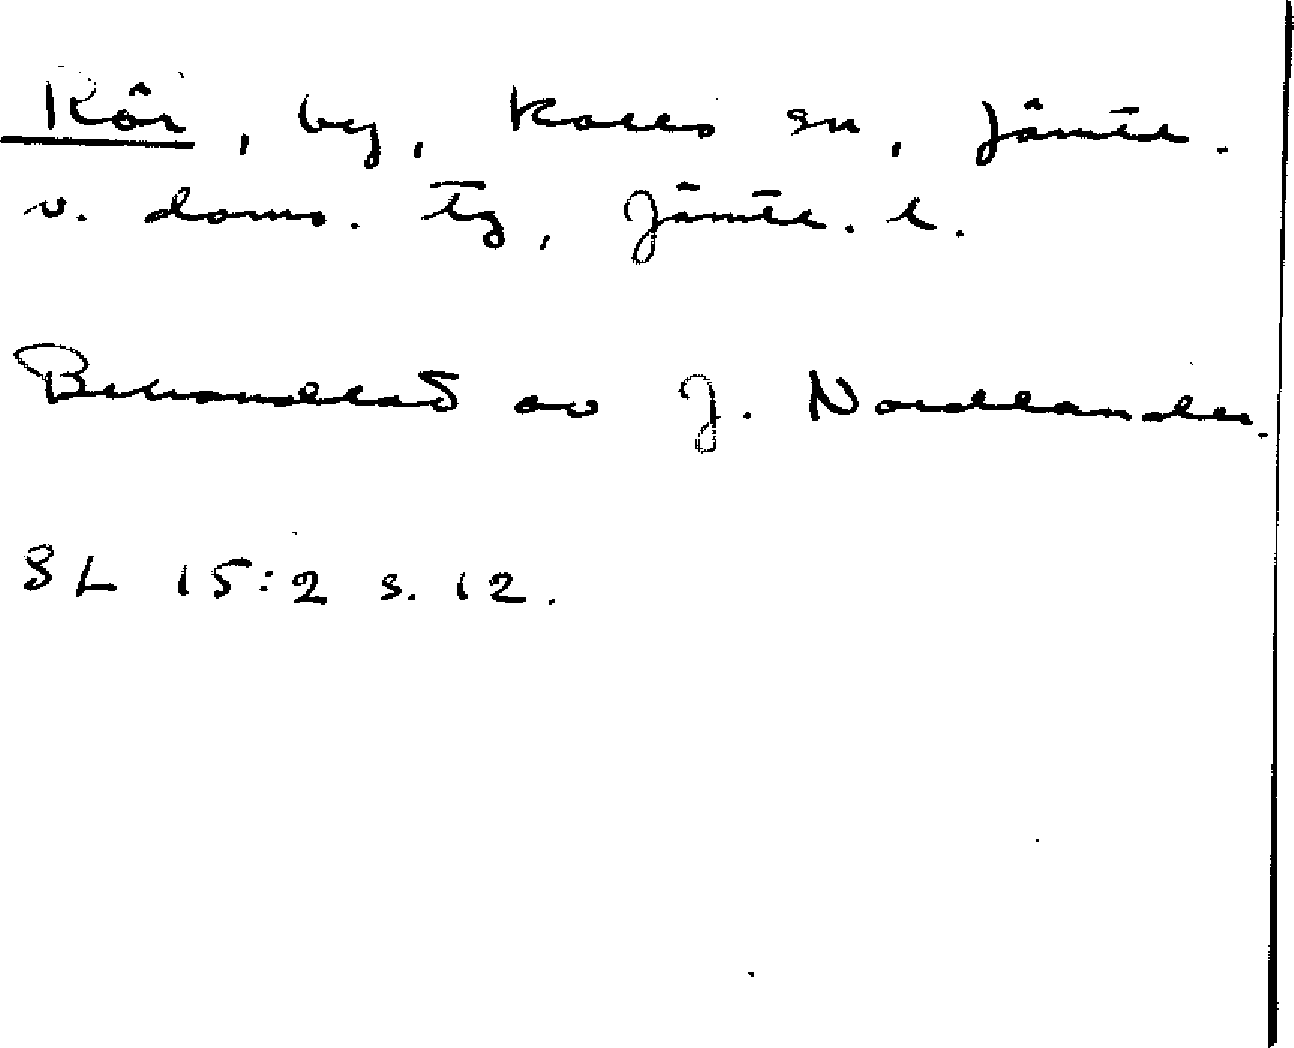 Rör, by, Kalls sn, Jämtl.
v. doms. tg, Jämtl. l.
Behandlat av J. Nordlander.
SL 15:2 s. 12.